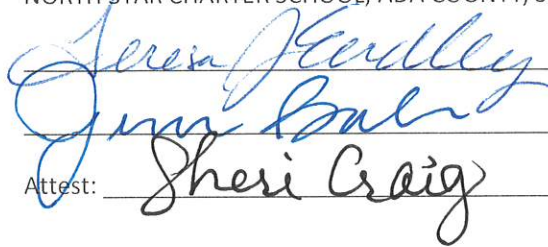 NORTH STAR CHARTER SCHOOL, ADA COUNTY,
Teresa J Eardley
Jim
Attest: Sheri Craig